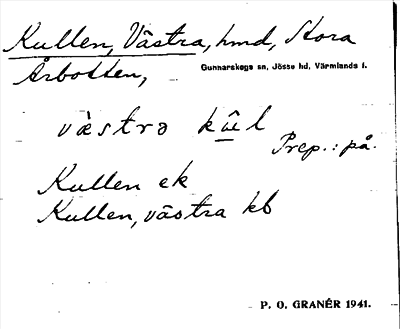 Kullen, Västra, hmd, Stora
Årbotten,
Gunnarskogs sn, Jösse hd, Värmlands l.
västrə kûl
Prep.: på.
Kullen ek
Kullen, västra kb
P. O. GRANÉR 1941.